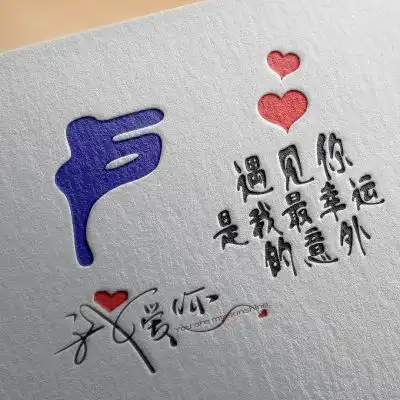 遇见你
是我最幸运
的意外
我爱你
You are my sunshine.